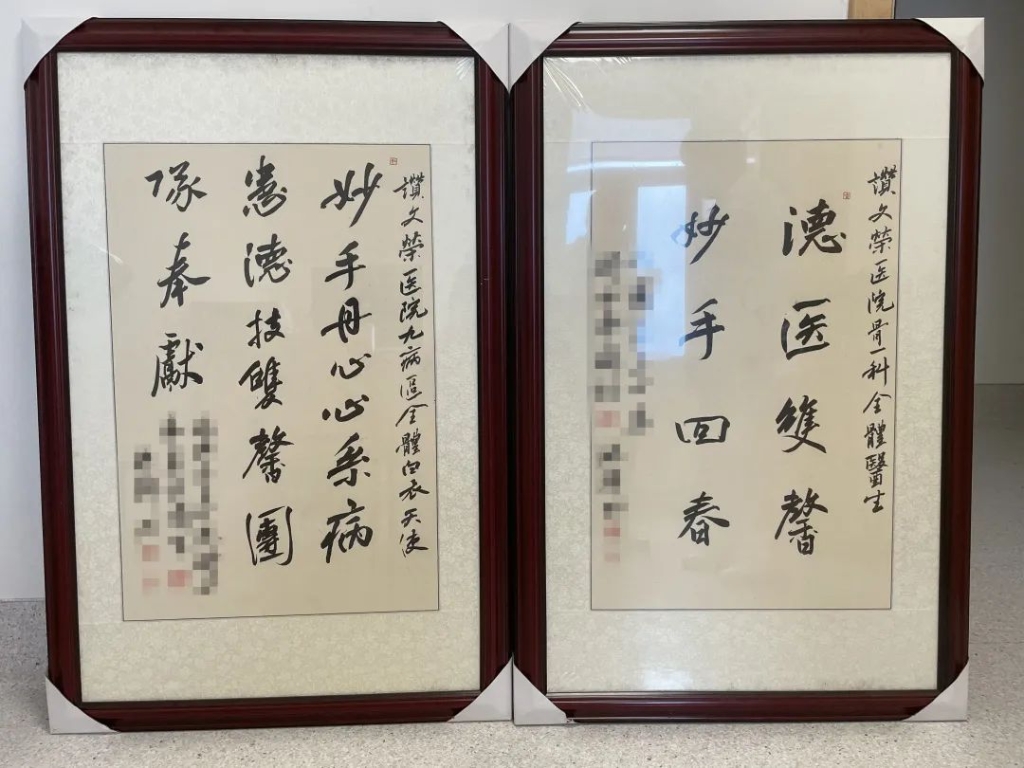 讚文榮医院骨一科全體醫生
德医雙馨
妙手回春
讚文榮医院九病區全體白衣天使
妙手丹心心系病
患德技雙馨團
隊奉獻